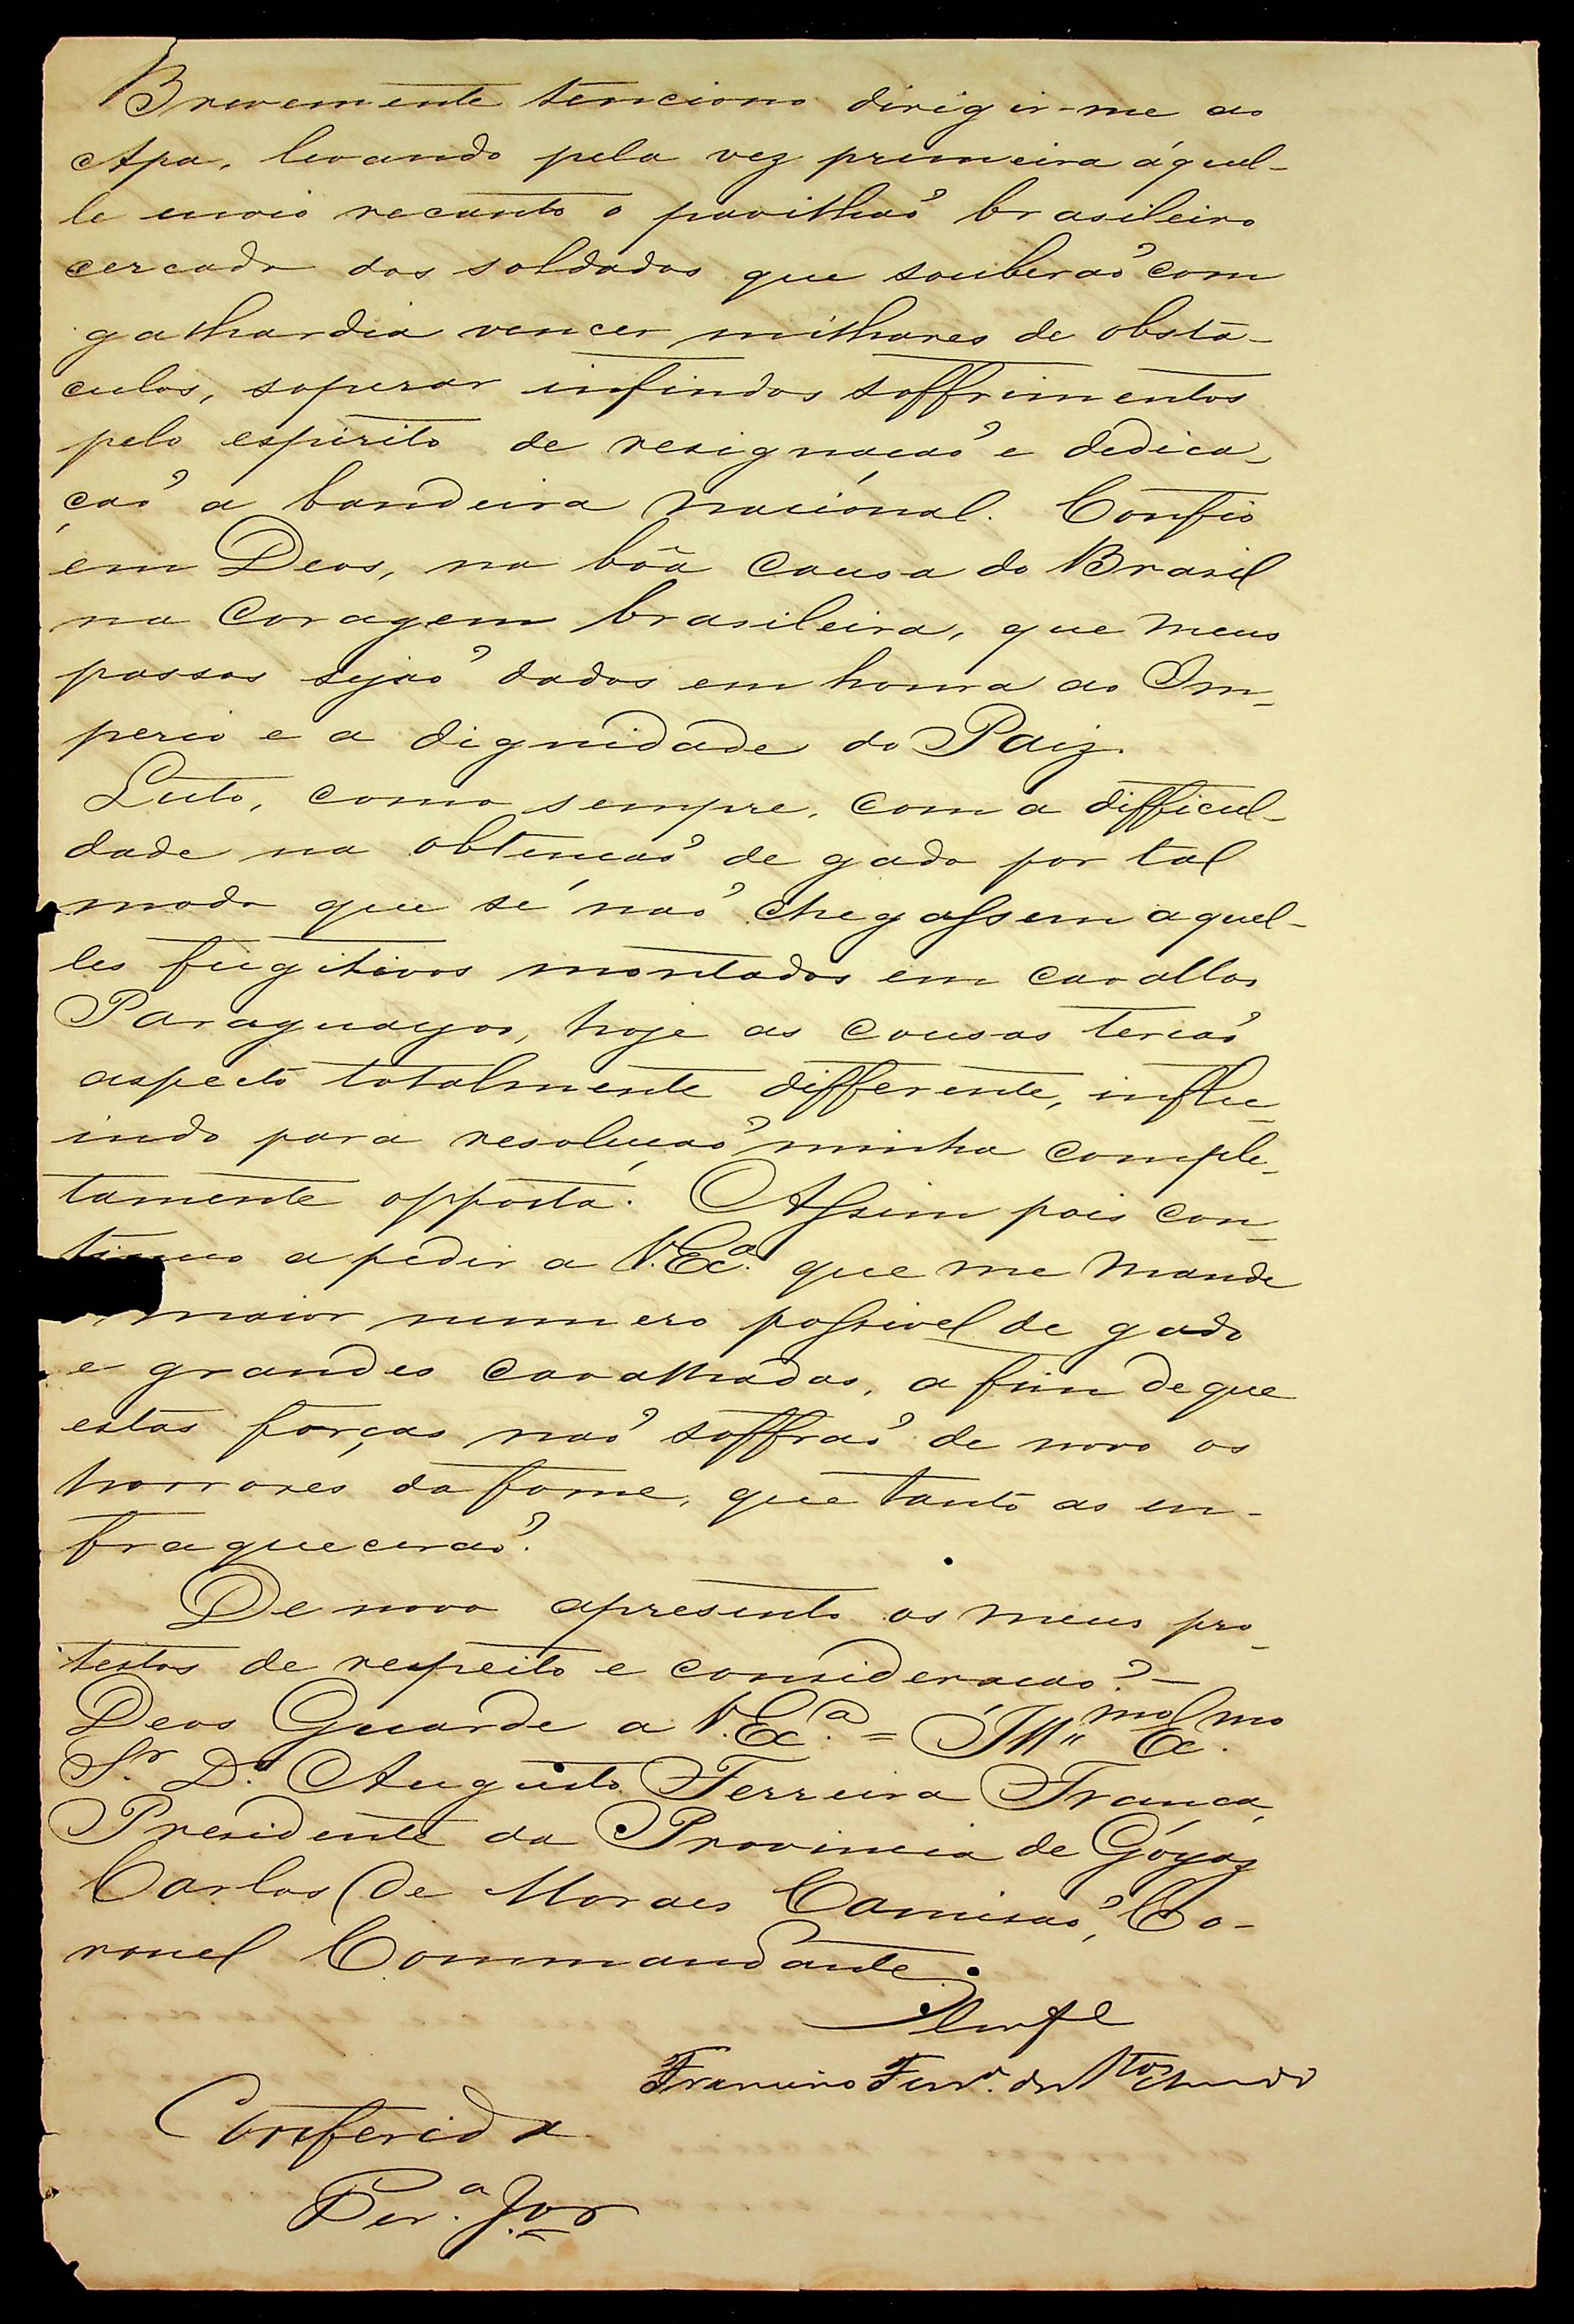 Brevemente tenciono dirigir-me ao
Apa, levando pela vez primeira áquel-
le invio recanto o pavilhaõ brasileiro
cercado dos soldados que souberaõ com
galhardia vencer milhares de obsta-
culos, soperar infindos soffrimentos
pelo espirito de resignaçaõ e dedica-
çaõ a bandeira nacional. Confio
em Deos, na bôa causa do Brasil
na coragem brasileira, que meus
passos sejaõ dados em honra ao Im-
perio e a dignidade do Paiz.
Luto, como sempre, com a difficul-
dade na obtençaõ de gado por tal
modo que se naõ chegassem aquel-
les fugitivos montados em cavallos
Paraguayos, hoje as cousas teriaõ
aspecto totalmente differente, influ-
indo para resoluçaõ minha comple-
tamente opposta. Assim pois con-
tinuo a pedir a V. Ex.ª que me mande
maior numero possivel de gado
e grandes cavalhadas, a fim de que
estas forças naõ soffraõ de novo os
horrores da fome, que tanto as en-
fraqueceraõ.
De novo apresento os meus pro-
testos de respeito e consideraçaõ. —
Deos Guarde a V. Ex.ª = Ill.mo Ex.mo
Sr. Dr. Augusto Ferreira França,
Presidente da Provincia de Goyaz
Carlos de Moraes Camisaõ, Co-
ronel Commandante.
Francisco
Conferido
Per.ª Jor